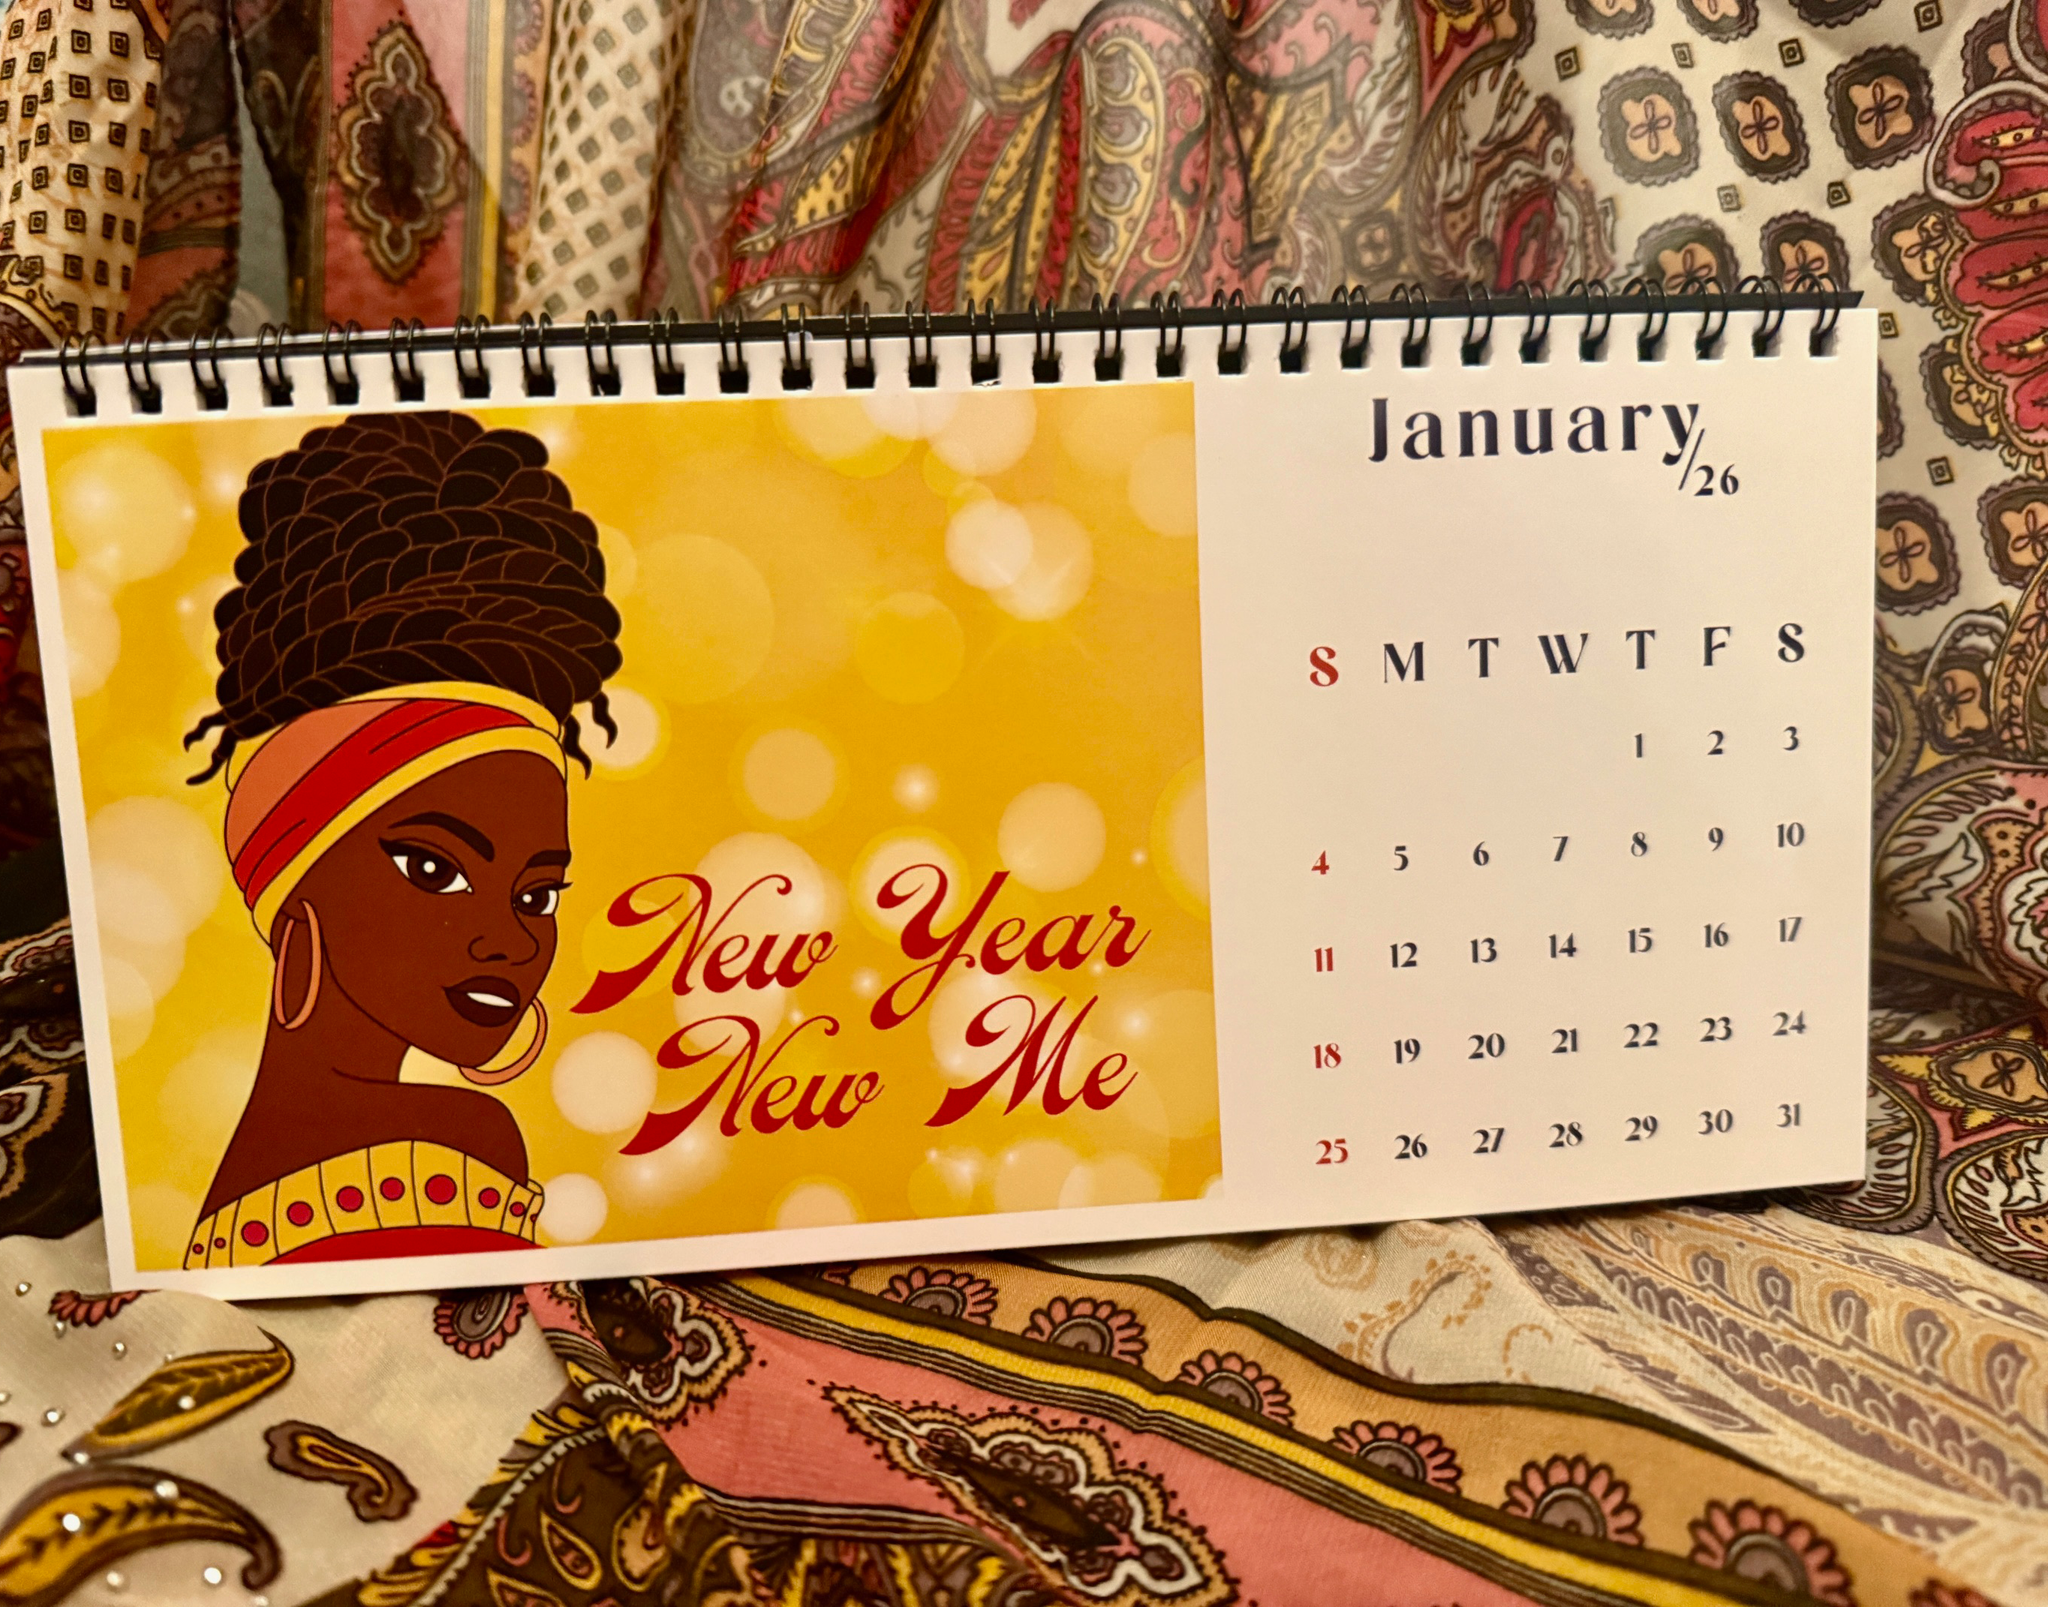 January/26
New Year
New Me
S M T W T F S
1 2 3
4 5 6 7 8 9 10
11 12 13 14 15 16 17
18 19 20 21 22 23 24
25 26 27 28 29 30 31